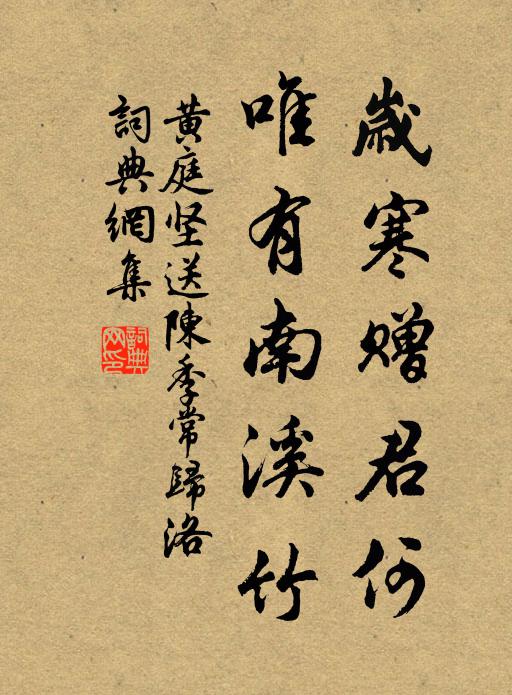 歲寒赠君何
唯有南溪竹
黄庭坚送陳季常歸洛
詞典網集
詞典网印